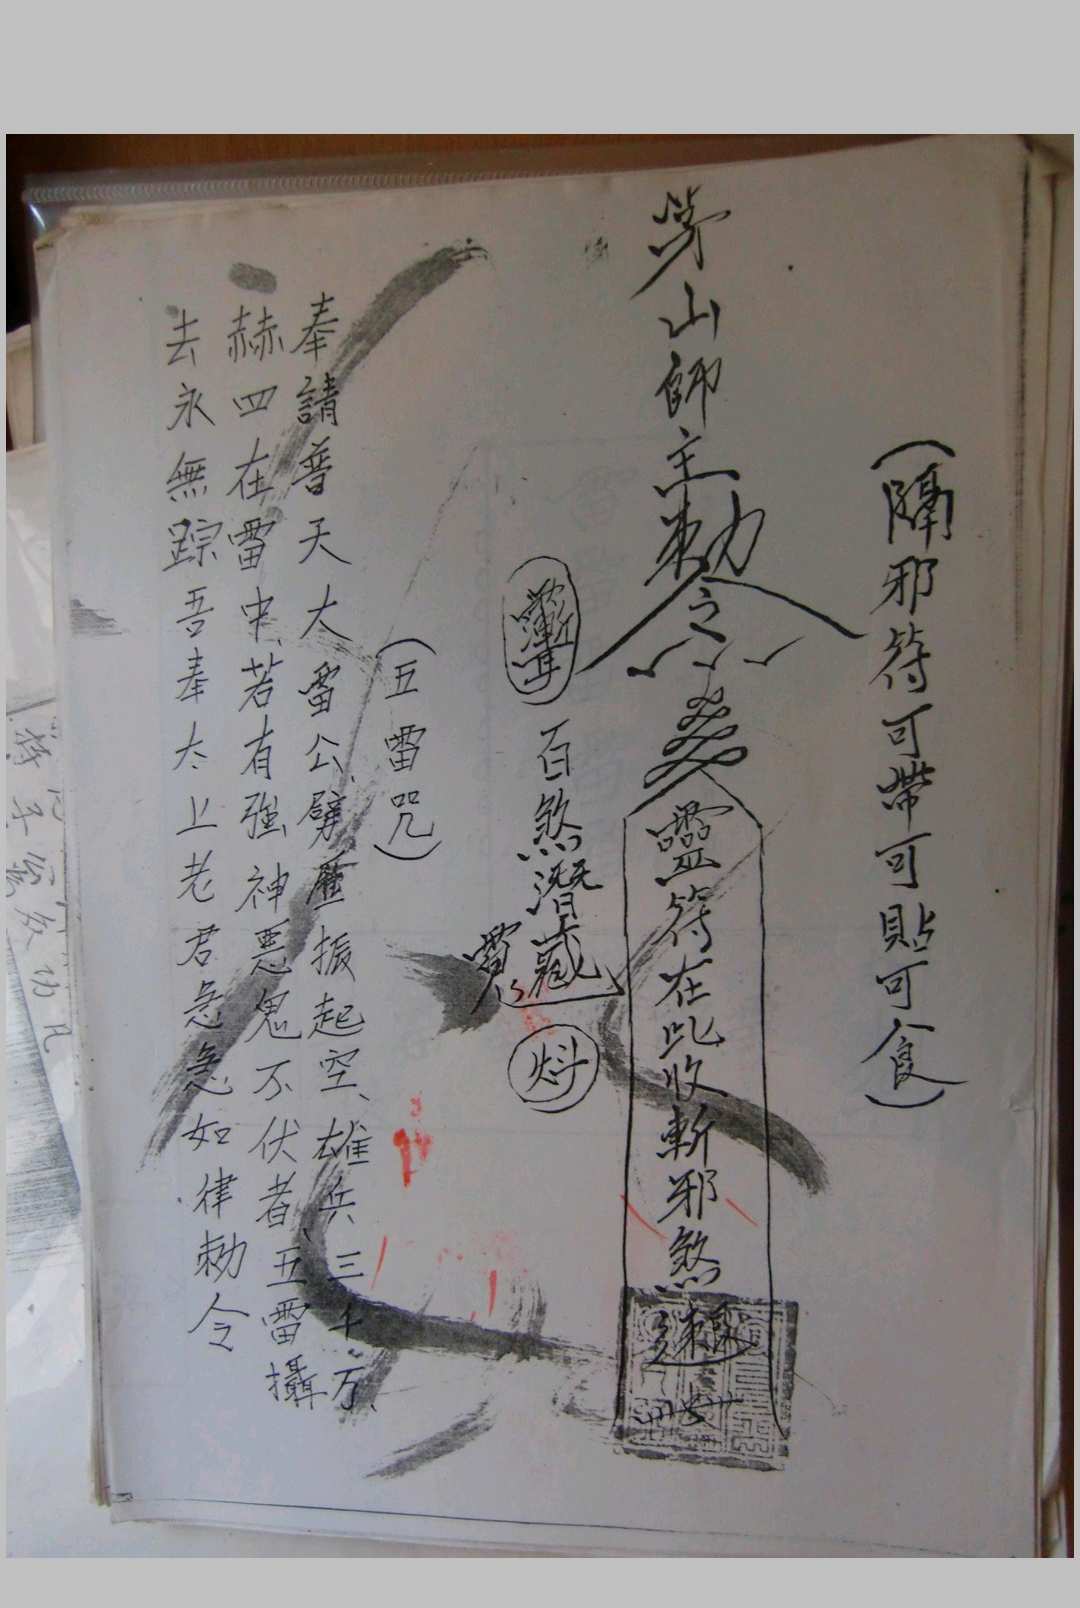 (隔邪符可帶可貼可食)
茅山師主勅令
靈符在此收斬邪煞
百煞潛藏
(五雷咒)
奉請普天大雷公、劈歷振起空、雄兵三千万、
赫四在雷中、若有強神惡鬼不伏者、五雷攝
去永無踪吾奉太上老君急急如律勅令